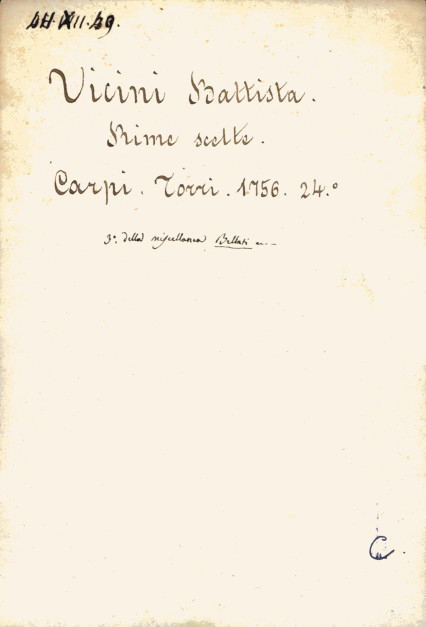 Vicini Battista.
Rime scelte.
Carpi. Torri. 1756. 24.º
3º. della miscellanea Bellati